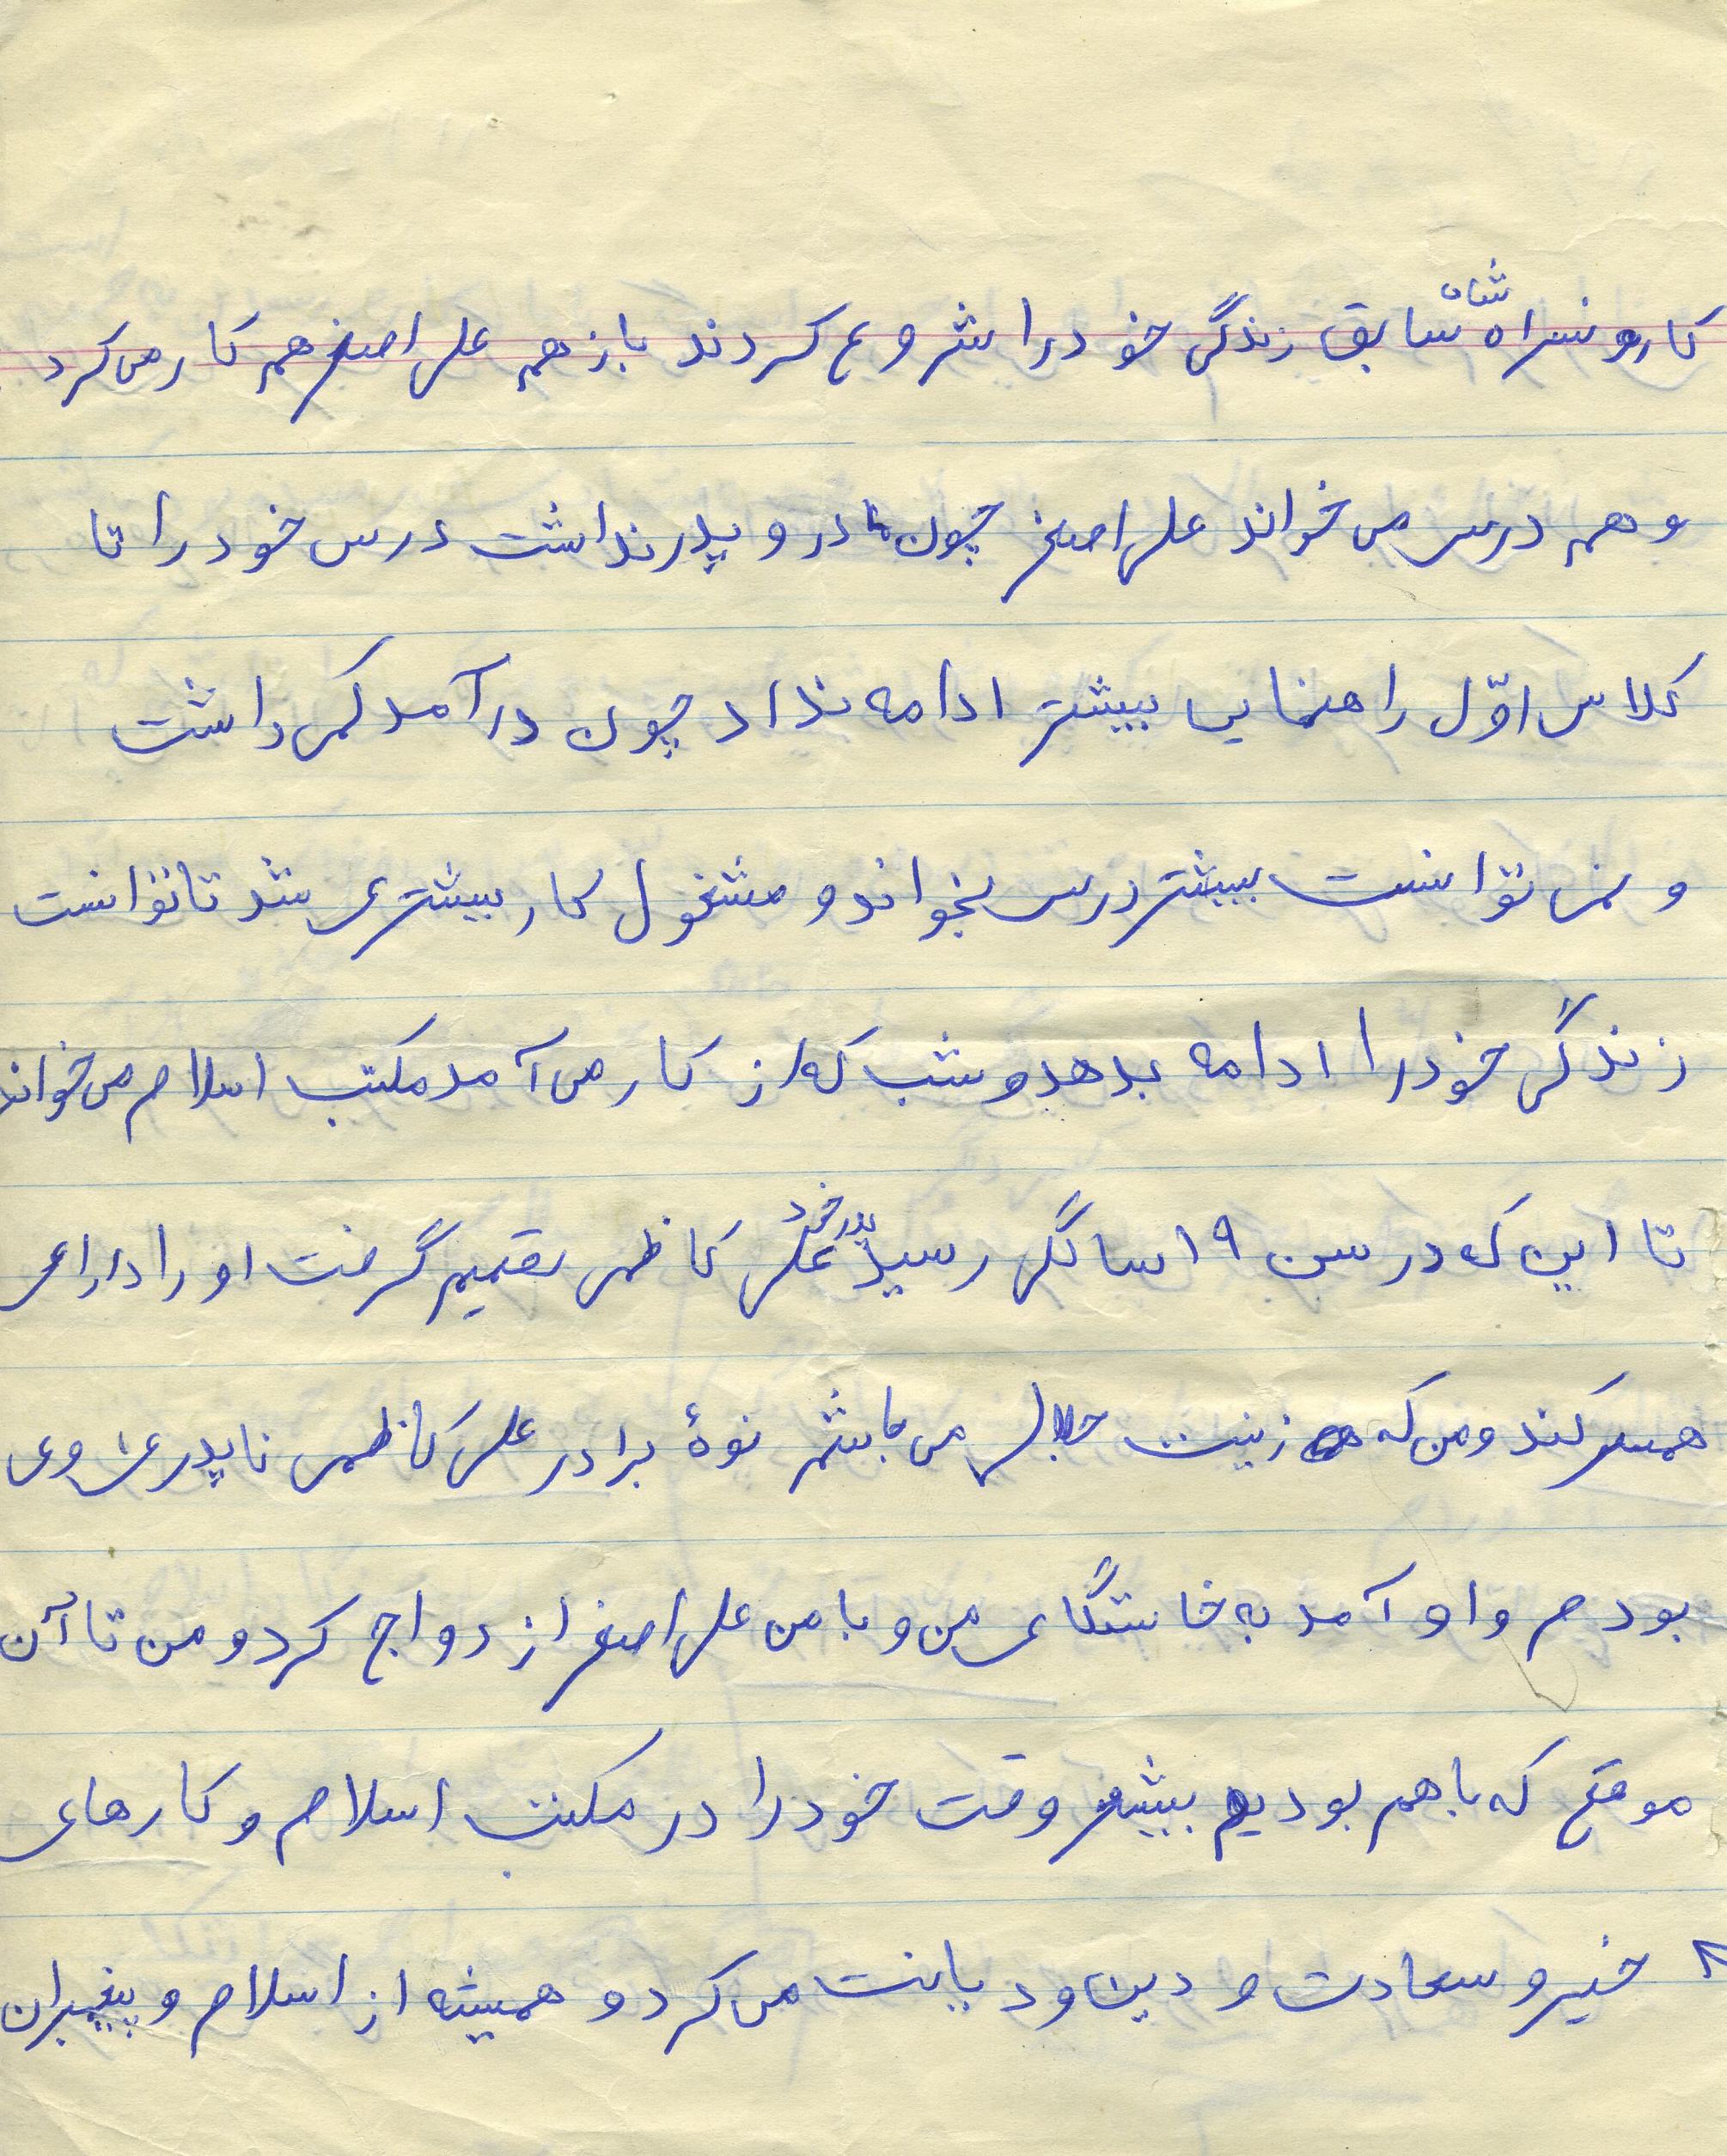 کاروانسراه شاه سابق زندگی خود را شروع کردند باز هم علی اصغر هم کار می کرد
و هم درس می خواند علی اصغر چون مادر و پدر نداشت درس خود را تا
کلاس اوّل راهنمایی بیشتر ادامه نداد چون درآمد کمی داشت
و نمی توانست بیشتر درس بخواند و مشغول کار بیشتری شد تا توانست
زندگی خود را ادامه بدهد و شب که از کار می آمد مکتب اسلام می خواند
تا این که در سن ۱۹ سالگی رسید پدر خود علی کاظمی تصمیم گرفت او را دارای
همسر کند و من که زینت جلالی می باشم نوهٔ برادر علی کاظمی ناپدری وی
بودم و او آمد به خاستگاری من و با من علی اصغر ازدواج کرد و من تا آن
موقع که با هم بودیم بیشتر وقت خود را در مکتب اسلام و کارهای
خیر و سعادت و دین و دیانت می کرد و همیشه از اسلام و پیغمبران